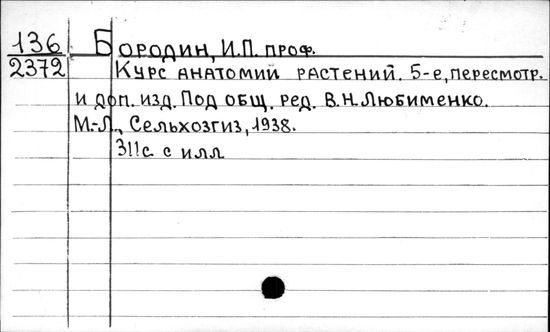 136 Бородин, И.П. проф.
2372 Курс анатомий растений. 5-е, пересмотр.
и доп. изд. Под общ. ред. В.Н. Любименко.
М.-Л., Сельхозгиз, 1938.
311с. с илл